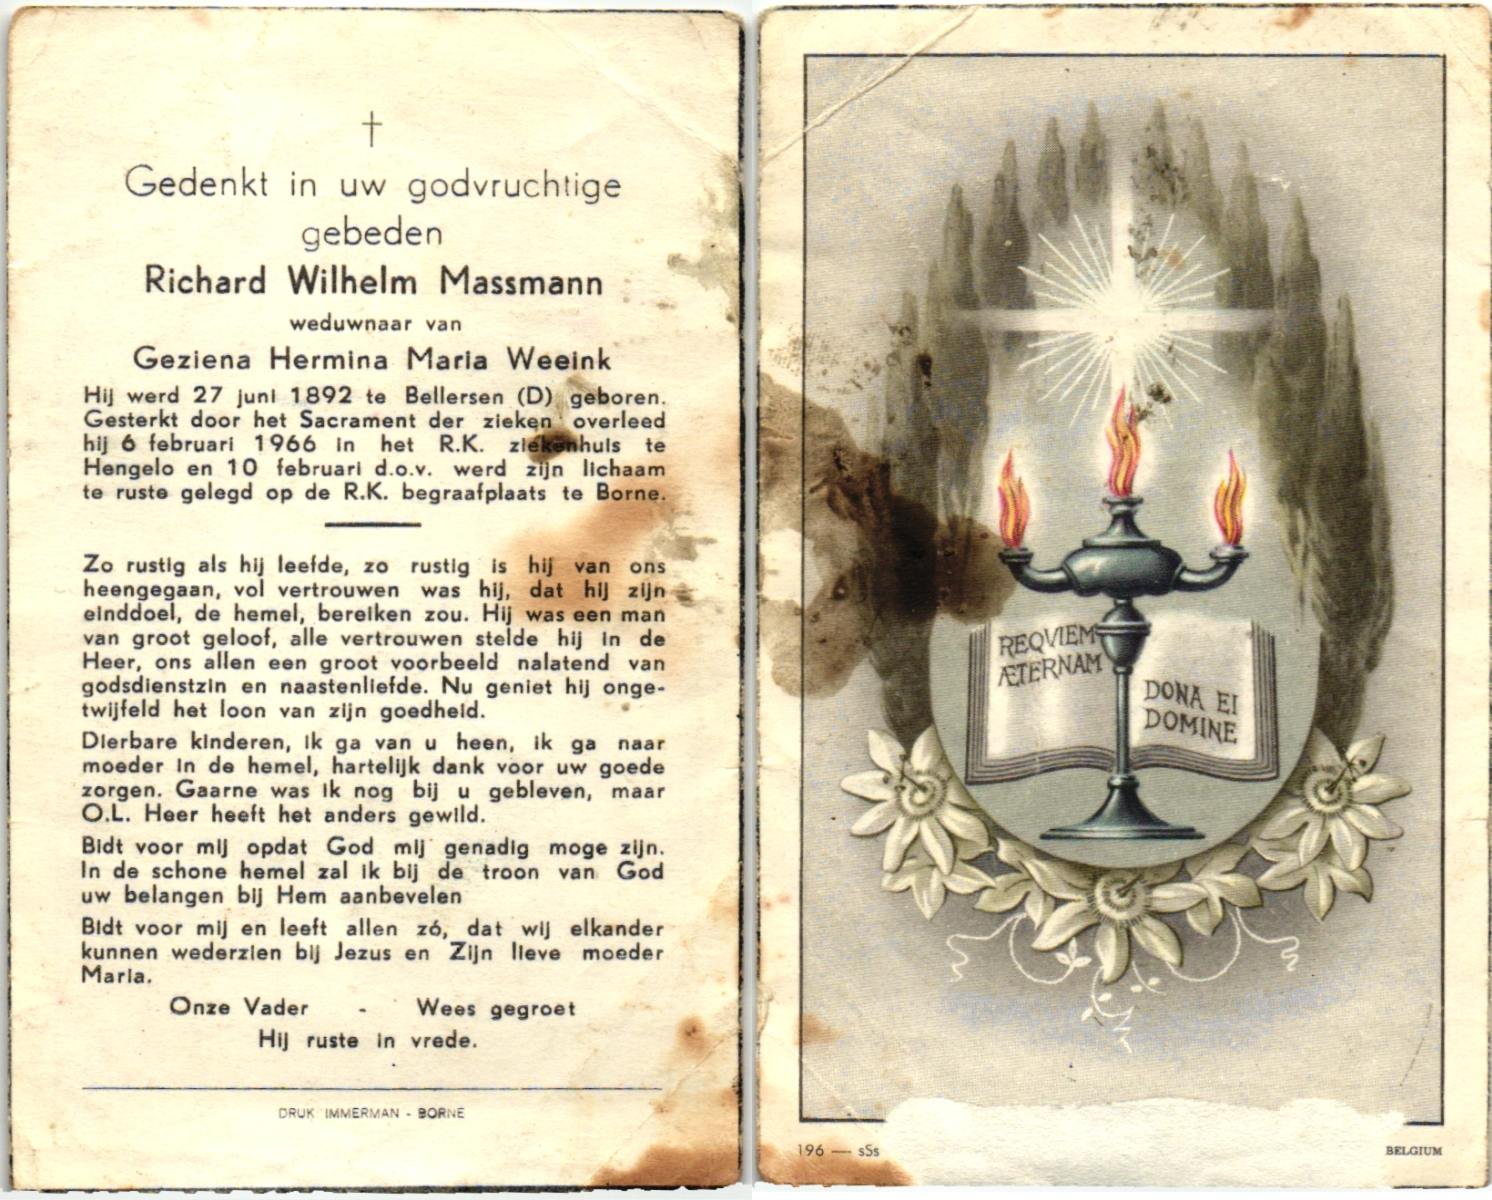 Gedenkt in uw godvruchtige
gebeden
Richard Wilhelm Massmann
weduwnaar van
Geziena Hermina Maria Weeink
Hij werd 27 juni 1892 te Bellersen (D) geboren.
Gesterkt door het Sacrament der zieken overleed
hij 6 februari 1966 in het R.K. ziekenhuis te
Hengelo en 10 februari d.o.v. werd zijn lichaam
te ruste gelegd op de R.K. begraafplaats te Borne.
Zo rustig als hij leefde, zo rustig is hij van ons
heengegaan, vol vertrouwen was hij, dat hij zijn
einddoel, de hemel, bereiken zou. Hij was een man
van groot geloof, alle vertrouwen stelde hij in de
Heer, ons allen een groot voorbeeld nalatend van
godsdienstzin en naastenliefde. Nu geniet hij onge-
twijfeld het loon van zijn goedheid.
Dierbare kinderen, ik ga van u heen, ik ga naar
moeder in de hemel, hartelijk dank voor uw goede
zorgen. Gaarne was ik nog bij u gebleven, maar
O.L. Heer heeft het anders gewild.
Bidt voor mij opdat God mij genadig moge zijn.
In de schone hemel zal ik bij de troon van God
uw belangen bij Hem aanbevelen
Bidt voor mij en leeft allen zó, dat wij elkander
kunnen wederzien bij Jezus en Zijn lieve moeder
Maria.
Onze Vader - Wees gegroet
Hij ruste in vrede.
DRUK IMMERMAN - BORNE
REQVIEM
ÆTERNAM
DONA EI
DOMINE
196 — sSs
BELGIUM